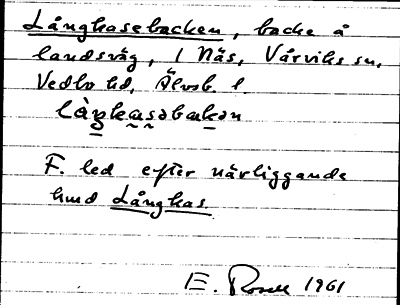 Långkasebacken, backe å
landsväg, i Näs, Vårviks sn,
Vedbo hd, Älvsb. l.
låŋkasəbakən
F. led efter närliggande
hmd Långkas.
E. Rosell 1961